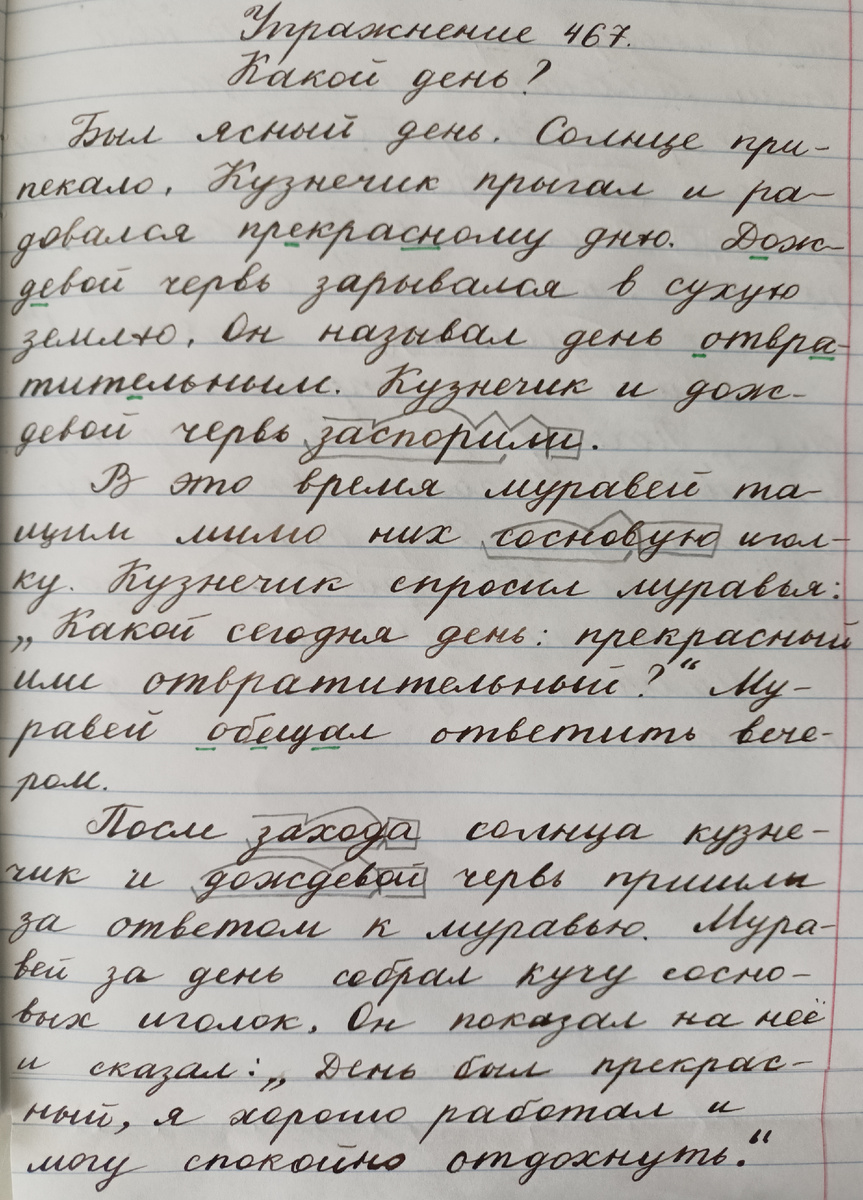 Упражнение 467.
Какой день?
Был ясный день. Солнце при-
пекало. Кузнечик прыгал и ра-
довался прекрасному дню. Дож-
девой червь зарывался в сухую
землю. Он называл день отвра-
тительным. Кузнечик и дож-
девой червь заспорили.
В это время муравей та-
щил мимо них сосновую игол-
ку. Кузнечик спросил муравья:
„Какой сегодня день: прекрасный
или отвратительный?“ Му-
равей обещал ответить вече-
ром.
После захода солнца кузне-
чик и дождевой червь пришли
за ответом к муравью. Мура-
вей за день собрал кучу сосно-
вых иголок. Он показал на неё
и сказал: „День был прекрас-
ный, я хорошо работал и
могу спокойно отдохнуть.“